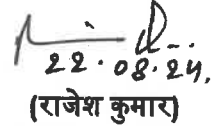 22.08.24.
(राजेश कुमार)